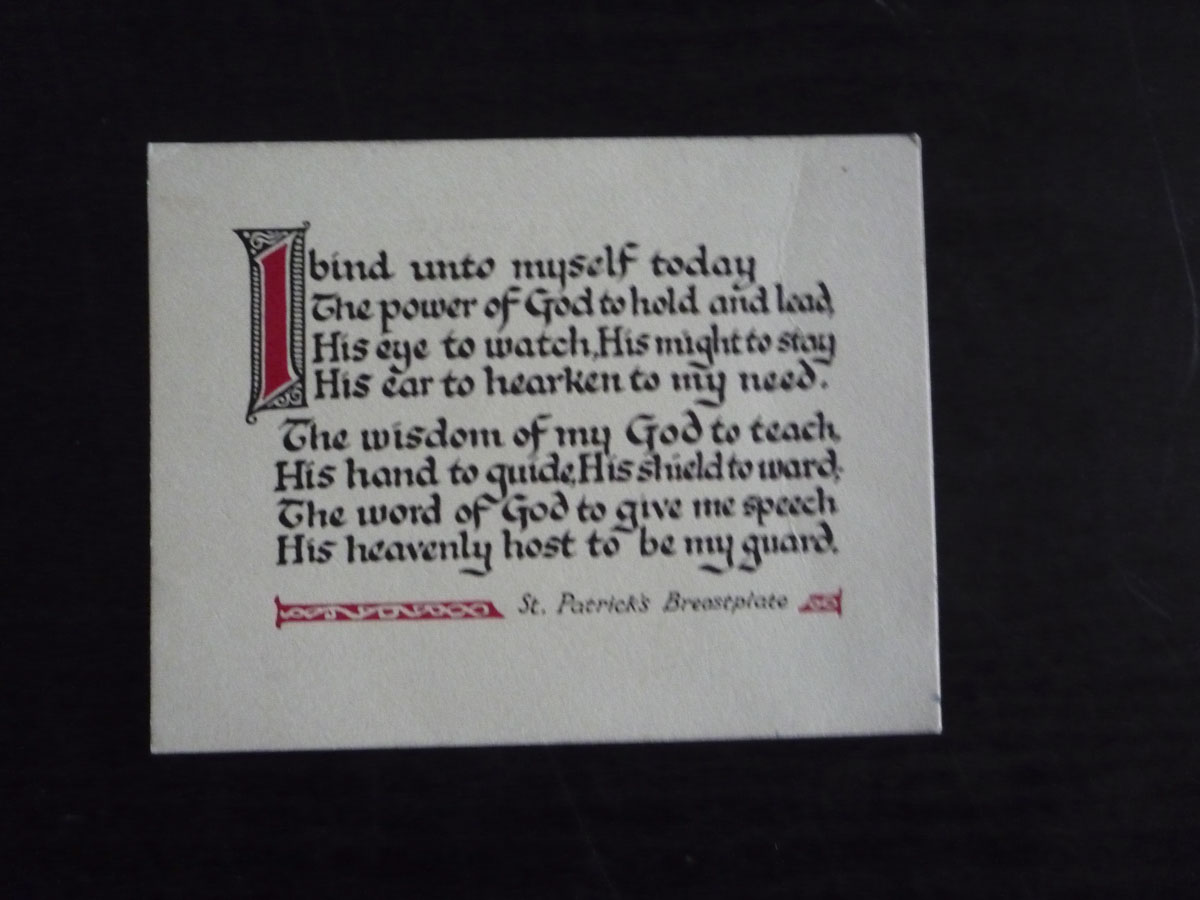 I bind unto myself today
The power of God to hold and lead,
His eye to watch, His might to stay
His ear to hearken to my need.
The wisdom of my God to teach,
His hand to guide, His shield to ward;
The word of God to give me speech
His heavenly host to be my guard.
St. Patrick's Breastplate